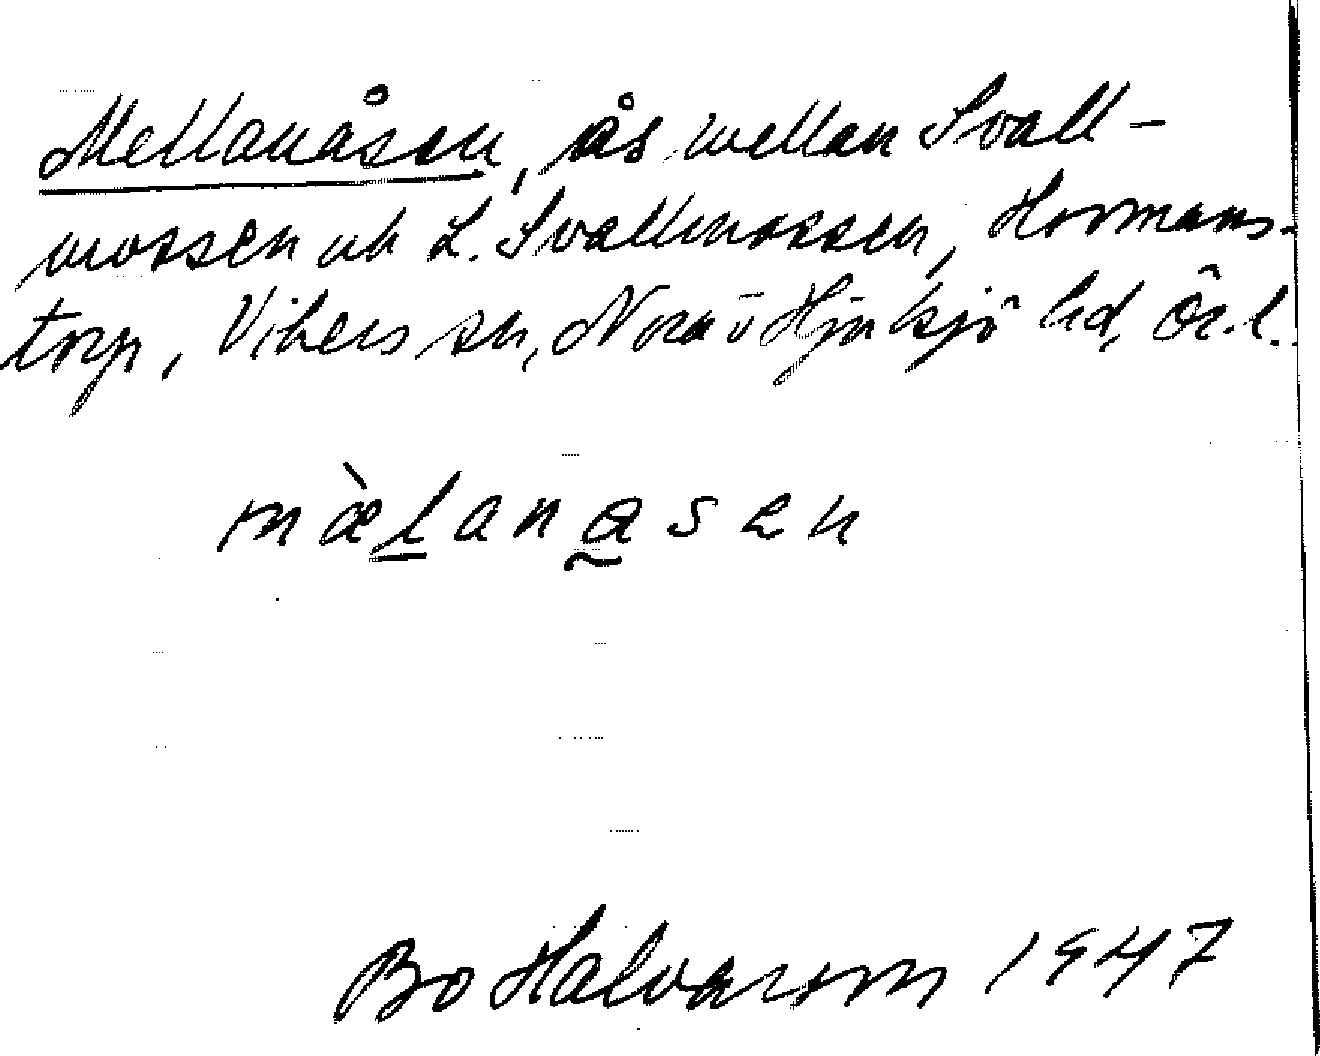 Mellanåsen, ås mellan Svall-
mossen och L. Svallmossen, Hormans-
torp, Vikers sn, Nora o Hjulsjö bd, Ör.l.
mæ̀lanasen
Bo Halvarson 1947